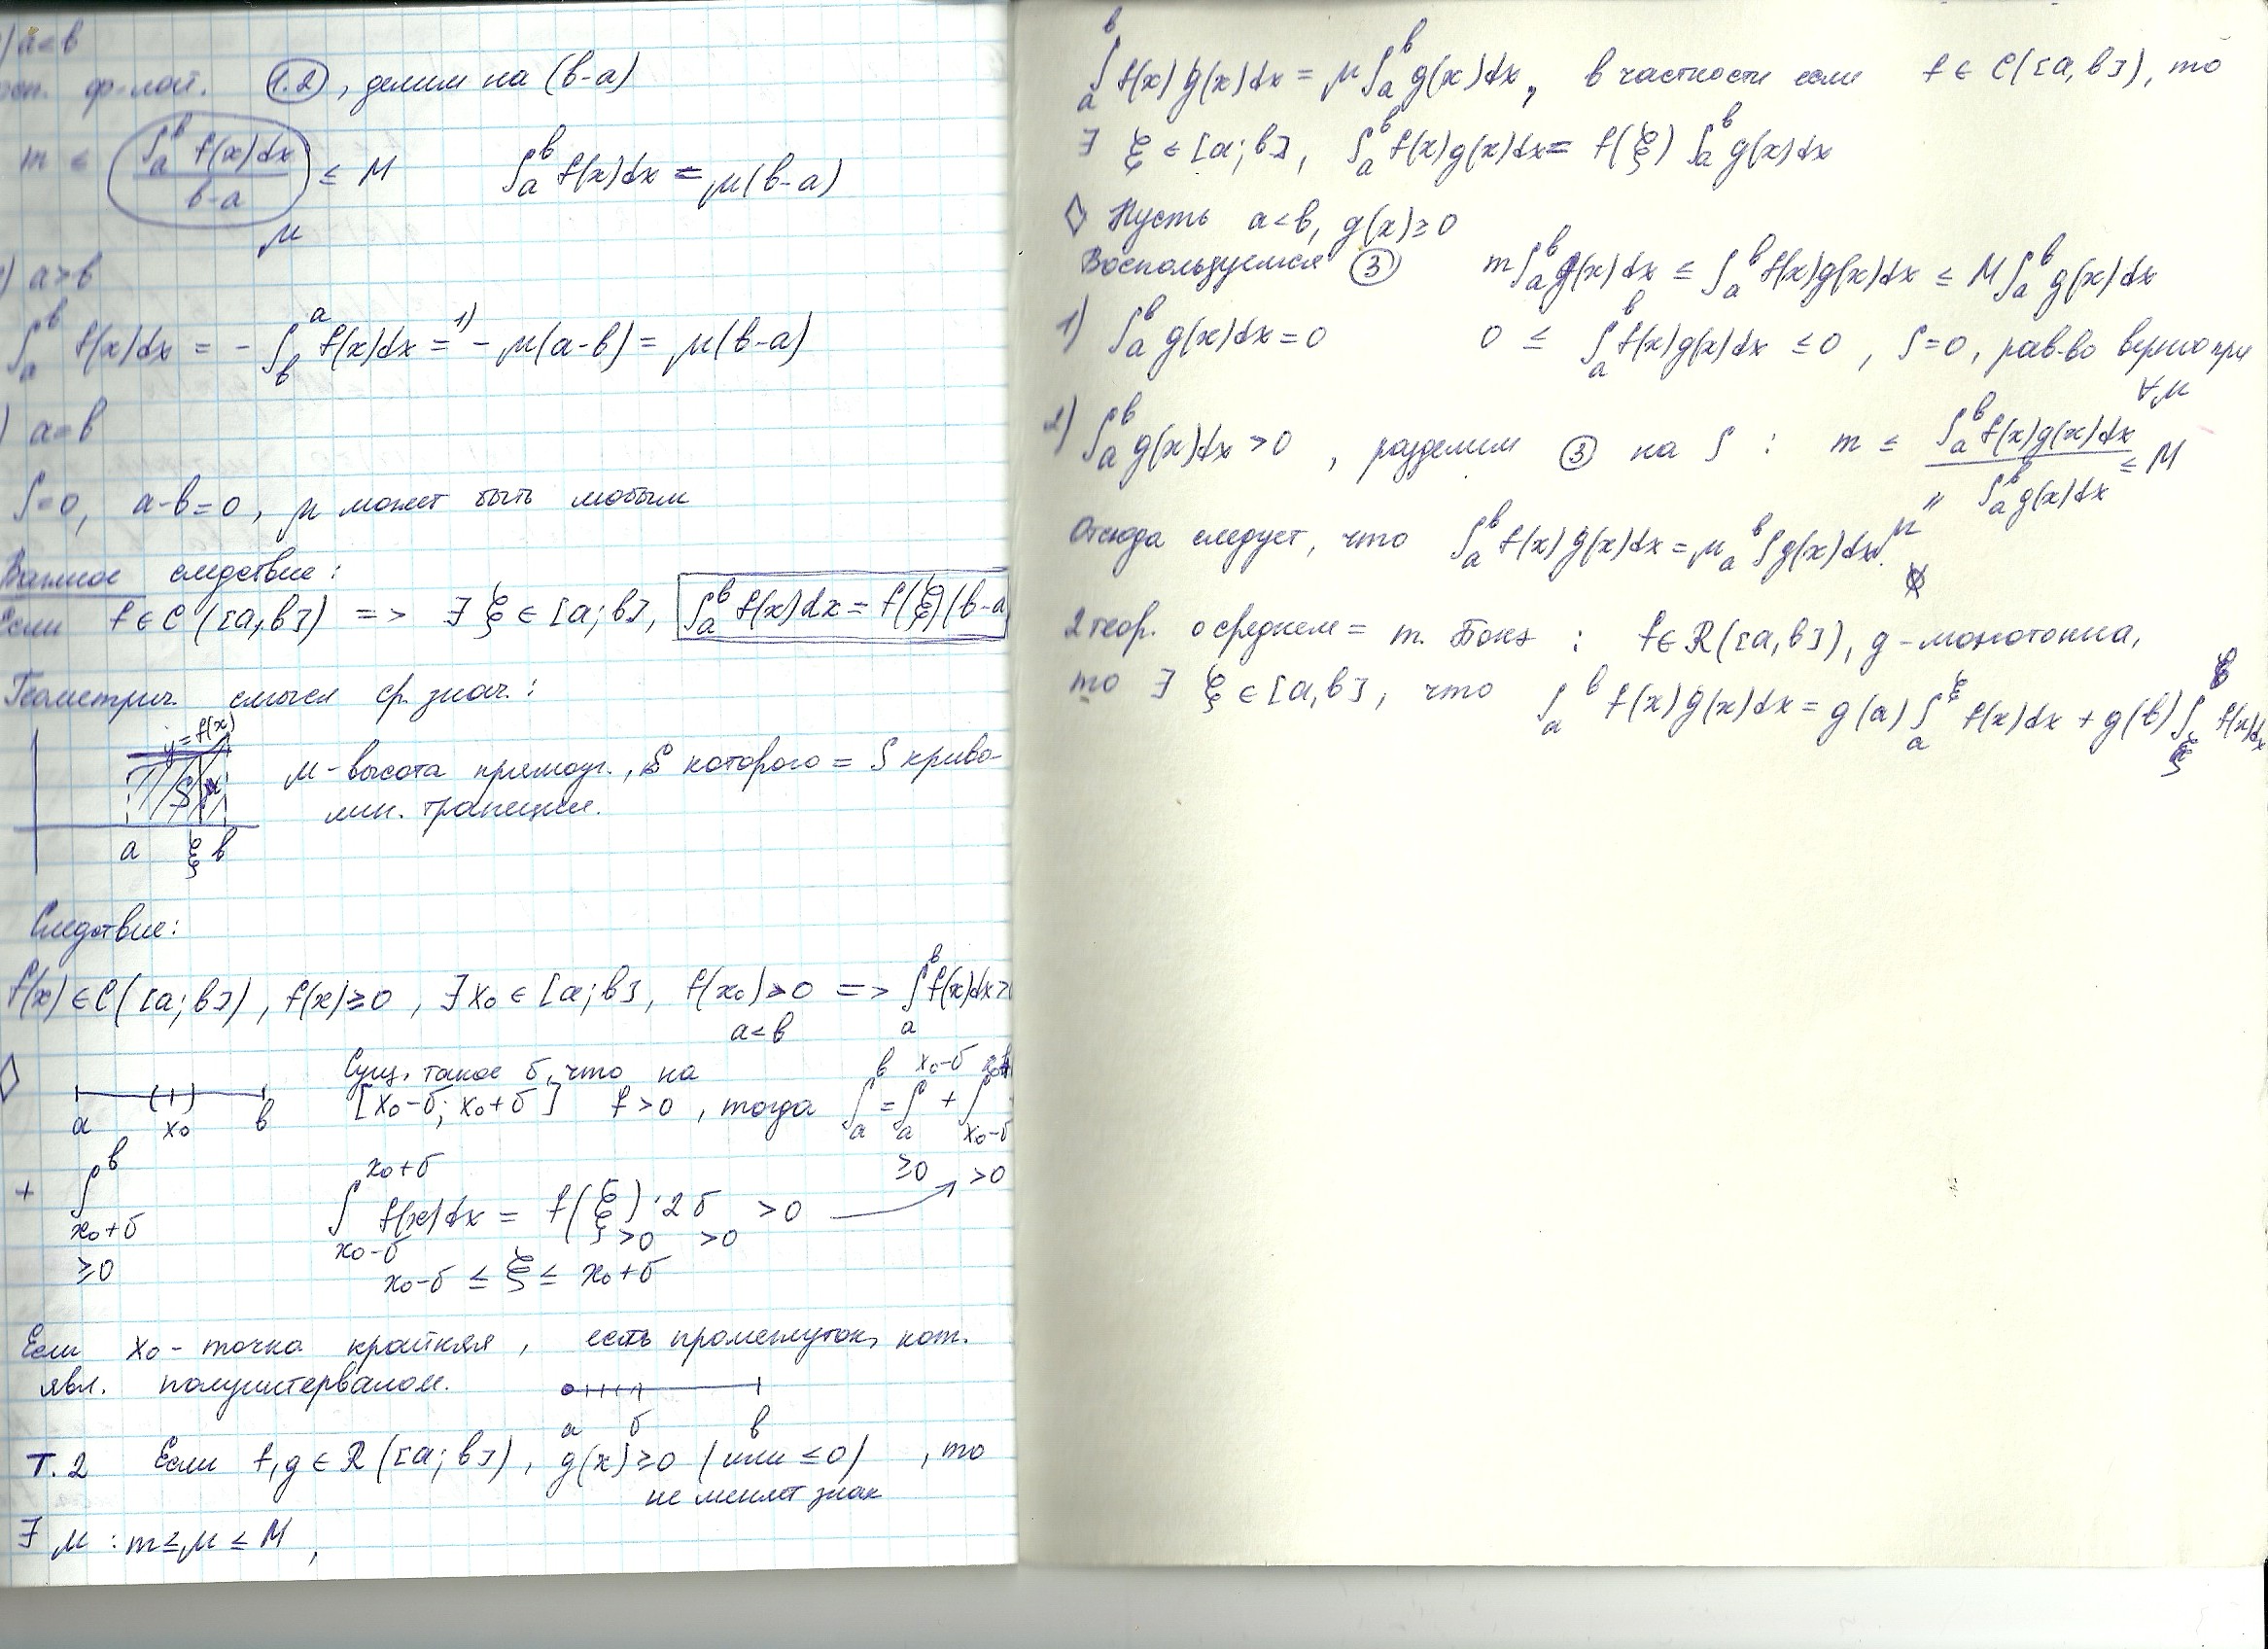 ) a<в
ф-лой. (1.2), делим на (в-а)
m ≤ ∫ₐᵇ f(x)dx / (в-а) ≤ M ∫ₐᵇ f(x)dx = μ(в-а)
μ
) а>в
∫ₐᵇ f(x)dx = - ∫ᵇₐ f(x)dx =¹⁾ - μ(а-в) = μ(в-а)
) а=в
∫=0, а-в=0, μ может быть любым
Важное следствие:
Если f∈C([а,в]) => ∃ ξ∈[а;в], ∫ₐᵇ f(x)dx = f(ξ)(в-а
Геометрич. смысл ср. знач.:
y=f(x)
μ-высота прямоуг., S которого = S криво-
лин. трапеции.
S μ
а ξ в
Следствие:
f(x)∈C([а;в]), f(x)≥0, ∃x₀∈[а;в], f(x₀)>0 => ∫ₐᵇ f(x)dx>
а<в
◊ Сущ. такое δ, что на
[x₀-δ; x₀+δ] f>0, тогда ∫ₐᵇ = ∫ₐ^(x₀-δ) + ∫_(x₀-δ)
а x₀ в
≥0 >0
+ ∫_(x₀+δ)^в ∫_(x₀-δ)^(x₀+δ) f(x)dx = f(ξ)·2δ >0
≥0 >0 >0
x₀-δ ≤ ξ ≤ x₀+δ
Если x₀ - точка крайняя, есть промежуток, кот.
явл. полуинтервалом.
а δ в
Т.2 Если f,g∈R([а;в]), g(x)≥0 (или ≤0), то
не меняет знак
∃ μ : m≤μ≤M,
∫ₐᵇ f(x)g(x)dx = μ∫ₐᵇ g(x)dx, в частности если f∈C([а,в]), то
∃ ξ∈[а;в], ∫ₐᵇ f(x)g(x)dx = f(ξ) ∫ₐᵇ g(x)dx
◊ Пусть а<в, g(x)≥0
Воспользуемся (3) m∫ₐᵇ g(x)dx ≤ ∫ₐᵇ f(x)g(x)dx ≤ M∫ₐᵇ g(x)dx
1) ∫ₐᵇ g(x)dx=0 0 ≤ ∫ₐᵇ f(x)g(x)dx ≤0, ∫=0, рав-во верно при
∀μ
2) ∫ₐᵇ g(x)dx>0, разделим (3) на ∫ : m ≤ ∫ₐᵇ f(x)g(x)dx / ∫ₐᵇ g(x)dx ≤ M
" μ "
Отсюда следует, что ∫ₐᵇ f(x)g(x)dx = μ ₐᵇ∫g(x)dx.
2 теор. о среднем = т. Бонэ : f∈R([а,в]), g-монотонна,
то ∃ ξ∈[а,в], что ∫ₐᵇ f(x)g(x)dx = g(а)∫ₐ^ξ f(x)dx + g(в)∫_ξ^в f(x)dx